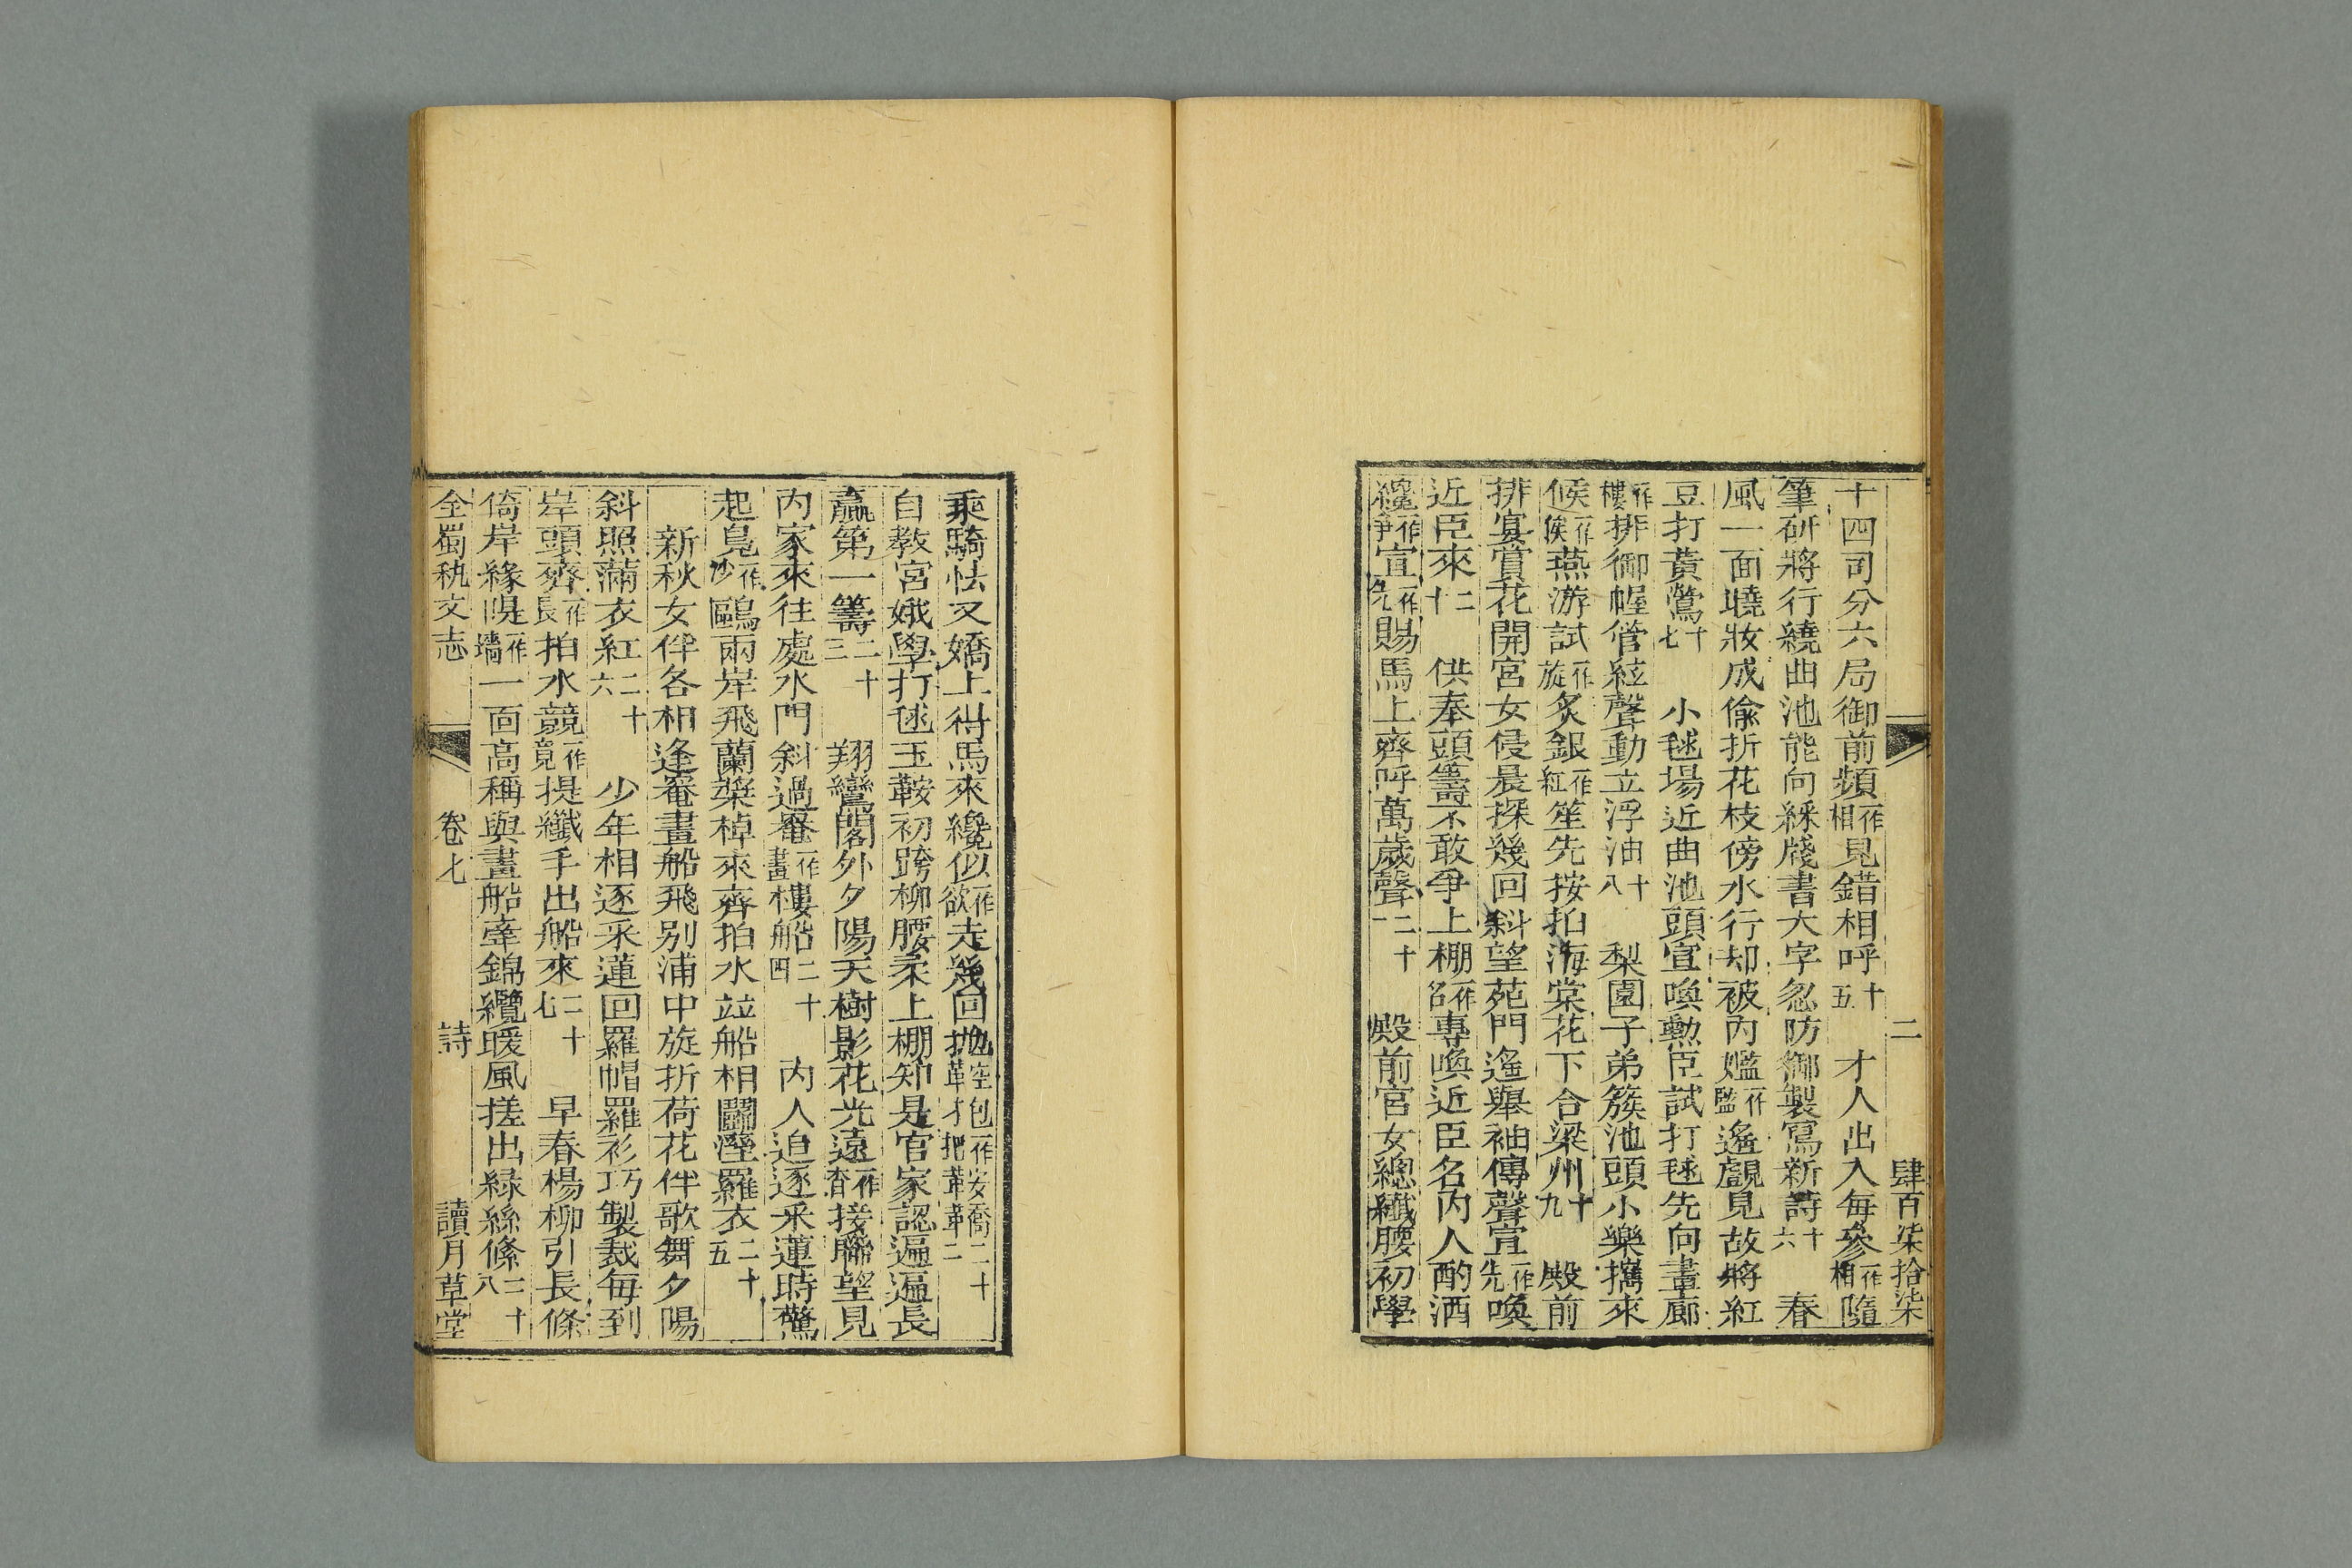 二　肆百柒拾柒
十四司分六局御前頻一作相見錯相呼十五　才人出入每參一作相隨
筆研將行繞曲池能向綵牋書大字忽防御製寫新詩十六　春
風一面曉妝成偸折花枝傍水行却被內㜮一作監遙覷見故將紅
豆打黃鶯十七　小毬場近曲池頭宣喚勲臣試打毬先向畫廊
一作樓排御幄管絃聲動立浮油十八　梨園子弟簇池頭小樂攜來
候一作俟燕游試一作旋炙銀一作紅笙先按拍海棠花下合梁州十九　殿前
排宴賞花開宮女侵晨探幾回斜望苑門遙舉袖傳聲宣一作先喚
近臣來二十　供奉頭籌不敢爭上棚一作名專喚近臣名內人酌酒
纔一作爭宣一作先賜馬上齊呼萬歲聲二十一　殿前宮女總纖腰初學
乘騎怯又嬌上得馬來纔似一作欲走幾回抛鞚
自教宮娥學打毬玉鞍初跨柳腰柔上棚知是官家認遍遍長
贏第一籌二十三　翔鸞閣外夕陽天樹影花光遠一作杳接聯望見
內家來往處水門斜過罨一作畫樓船二十四　內人追逐采蓮時驚
起鳧一作沙鷗兩岸飛蘭槳棹來齊拍水竝船相鬭溼羅衣二十五
新秋女伴各相逢罨畫船飛別浦中旋折荷花伴歌舞夕陽
斜照滿衣紅二十六　少年相逐采蓮回羅帽羅衫巧製裁每到
岸頭齊一作長拍水競一作竟提纖手出船來二十七　早春楊柳引長條
倚岸緣隄一作墻一面高稱與畫船牽錦纜暖風搓出綠絲絛二十八
全蜀秇文志　卷七　詩　讀月草堂